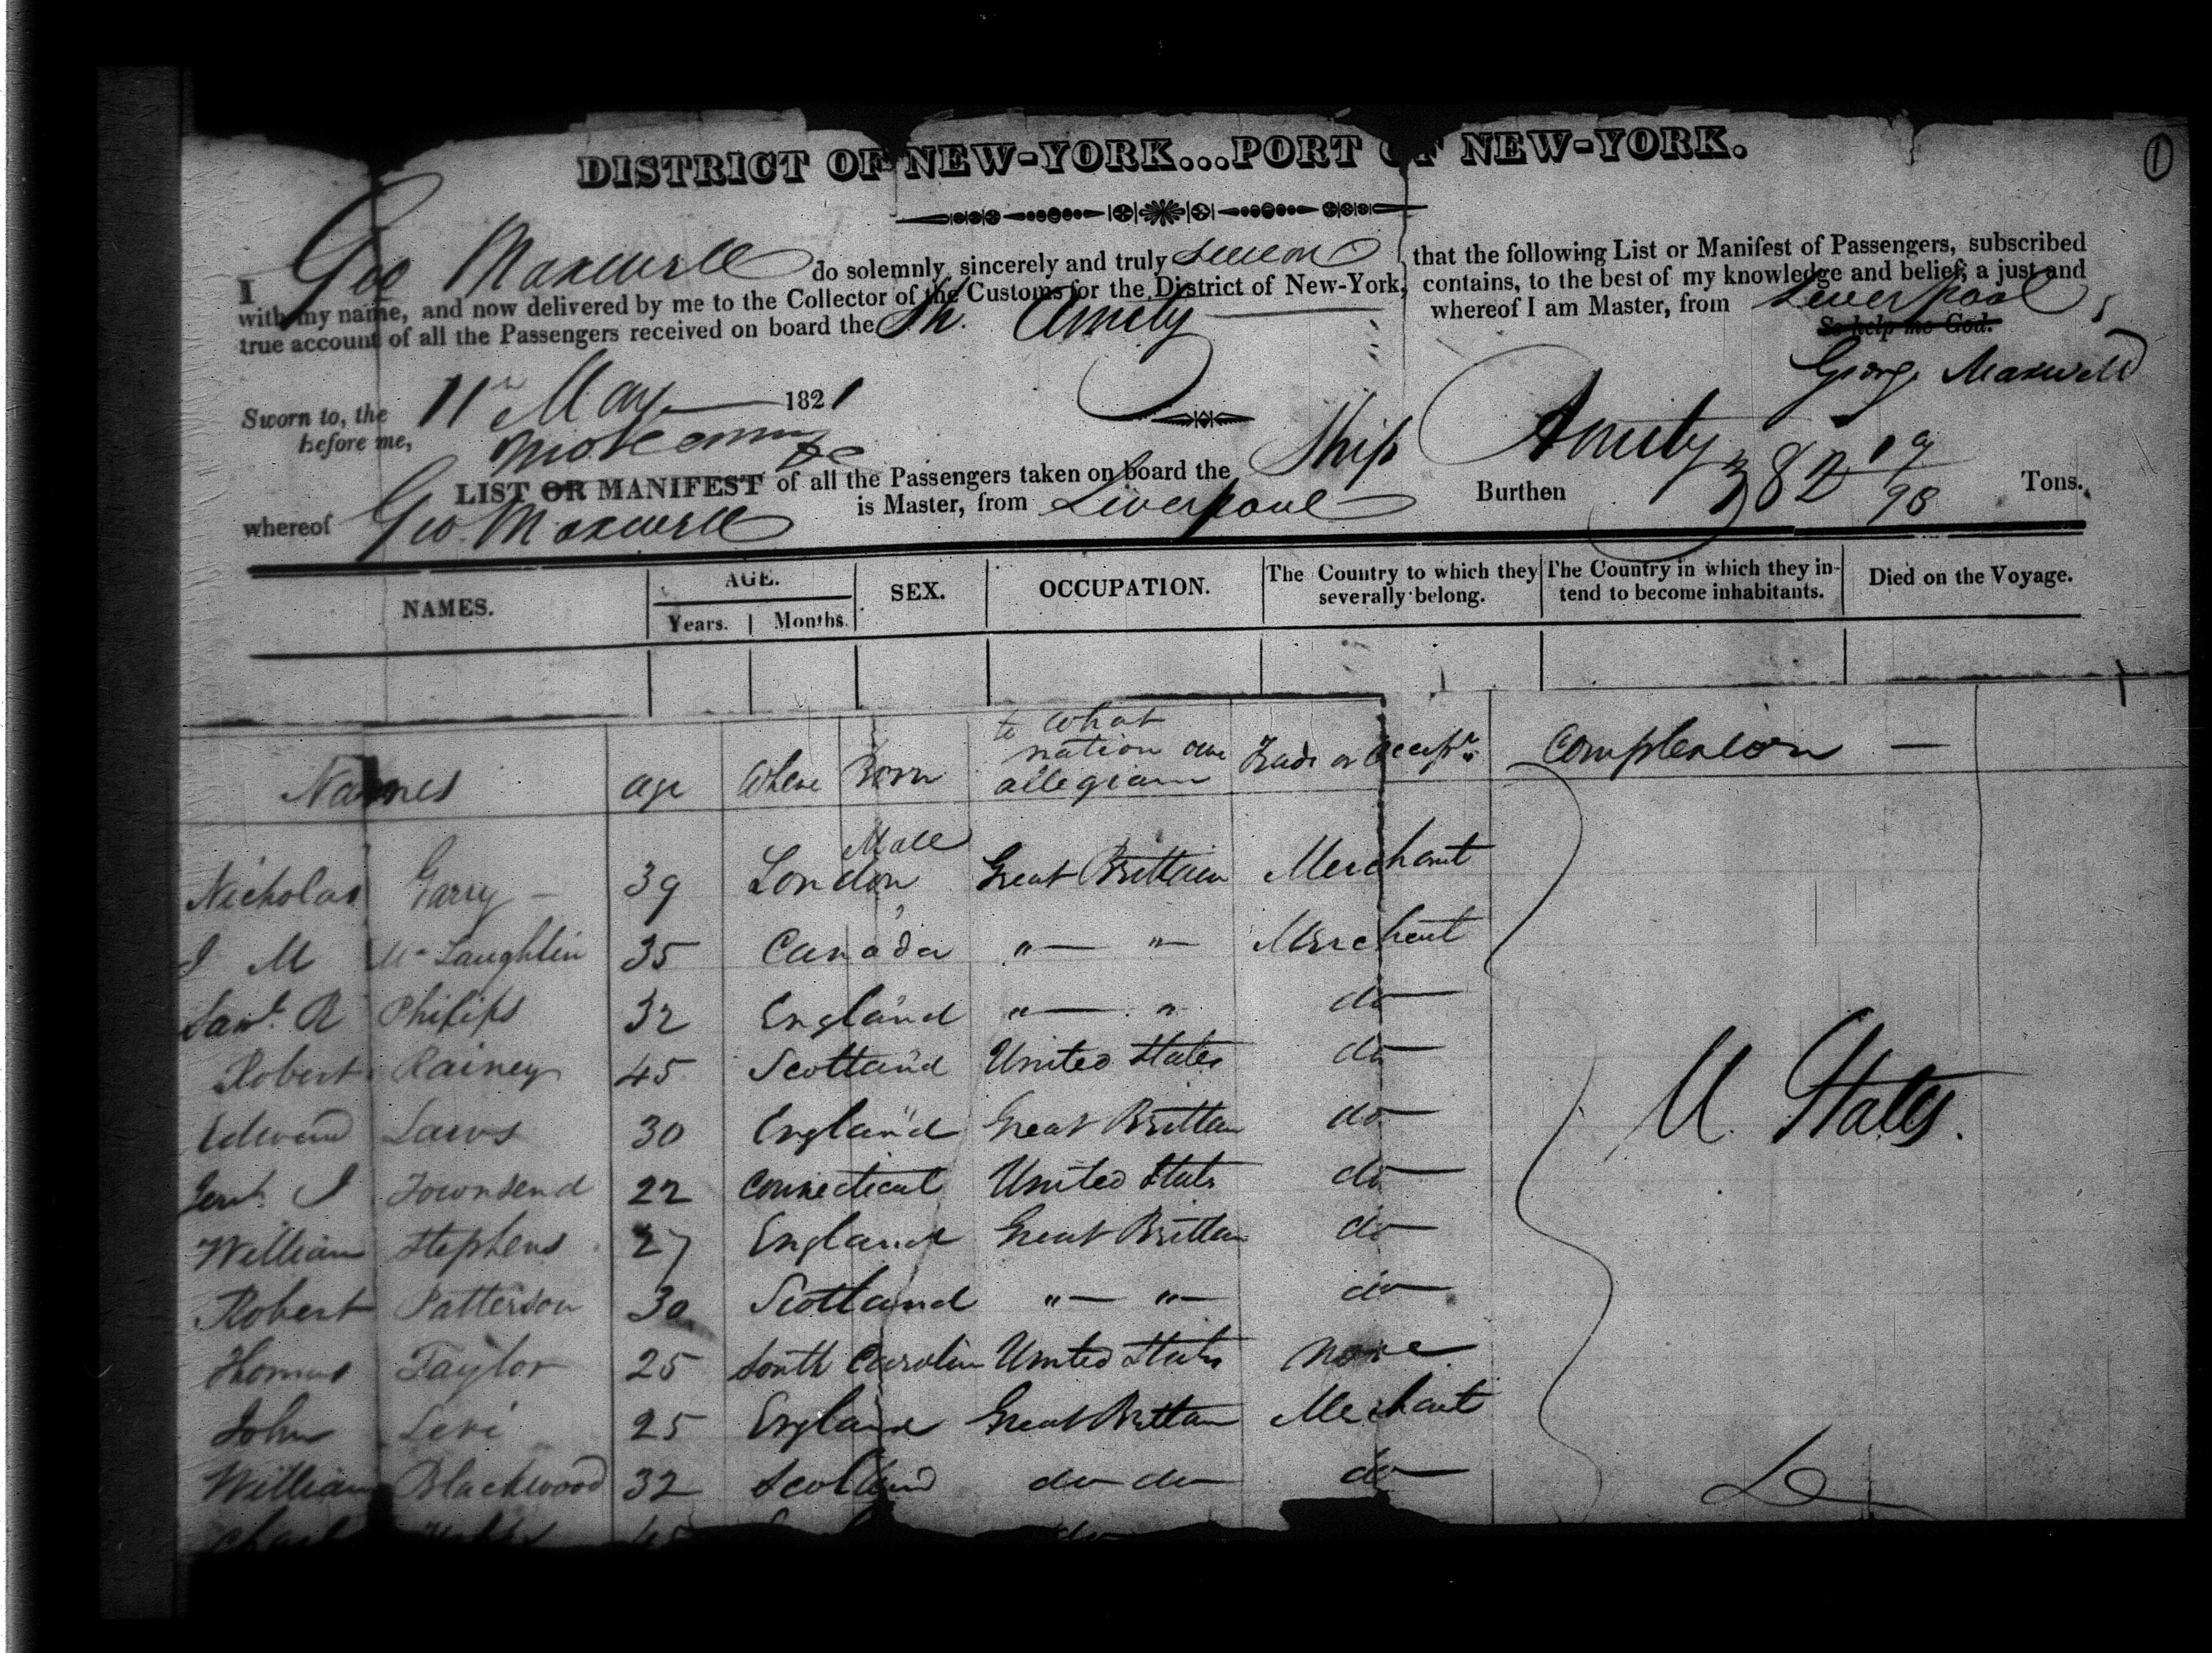 DISTRICT OF NEW-YORK...PORT OF NEW-YORK.
1
I Geo Maxwell do solemnly, sincerely and truly swear that the following List or Manifest of Passengers, subscribed
with my name, and now delivered by me to the Collector of the Customs for the District of New-York, contains, to the best of my knowledge and belief, a just and
true account of all the Passengers received on board the Sh. Amity whereof I am Master, from Liverpool
So help me God.
George Maxwell
Sworn to, the 11th May 1821
before me,
LIST OR MANIFEST of all the Passengers taken on board the Ship Amity
whereof Geo. Maxwell is Master, from Liverpool Burthen 382 19/98 Tons.
NAMES. AGE. SEX. OCCUPATION. The Country to which they severally belong. The Country in which they intend to become inhabitants. Died on the Voyage.
Years. Months.
Names age Where Born to what nation owe allegiance Trade or Occupn. Complexion —
Male
Nicholas Garry - 39 London Great Brittain Merchant
J M McLaughlin 35 Canada "— "— Merchant
Saml. R Philips 32 England "— " do
Robert Rainey 45 Scotland United States do
Edward Laws 30 England Great Brittan do
U. States.
J Townsend 22 Connecticut United States do
William Stephens 27 England Great Brittan do
Robert Patterson 30 Scotland "— "— do
Thomas Taylor 25 South Carolin United States None
John Levi 25 England Great Brittan Merchant
William Blackwood 32 Scotland do do do
45 do